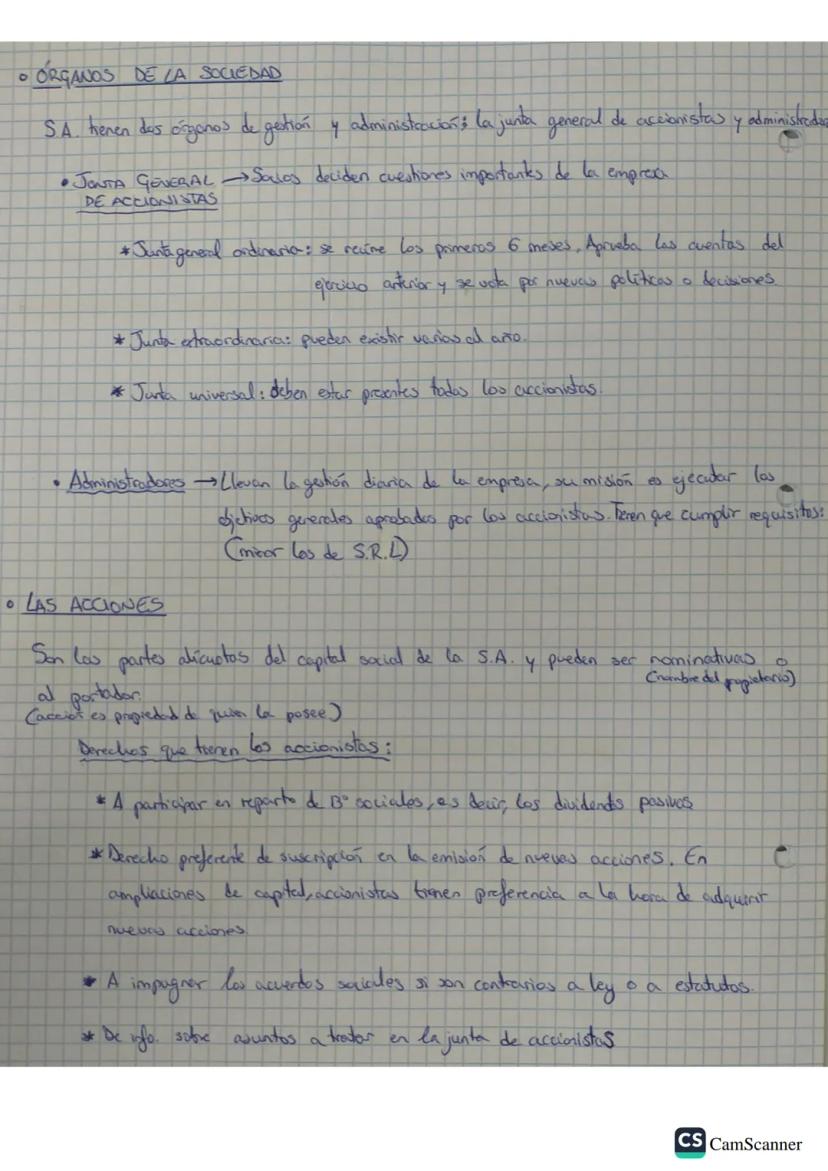 ° ÓRGANOS DE LA SOCIEDAD
S.A. tienen dos órganos de gestión y administración: la junta general de accionistas y administrador
• JUNTA GENERAL → Socios deciden cuestiones importantes de la empresa
DE ACCIONISTAS
* Junta general ordinaria: se reúne los primeros 6 meses. Aprueba las cuentas del
ejercicio anterior y se vota por nuevas políticas o decisiones
* Junta extraordinaria: pueden existir varias al año.
* Junta universal: deben estar presentes todos los accionistas.
• Administradores → Llevan la gestión diaria de la empresa, su misión es ejecutar los
objetivos generales aprobados por los accionistas. Tienen que cumplir requisitos:
(mirar los de S.R.L)
° LAS ACCIONES
Son las partes alícuotas del capital social de la S.A. y pueden ser nominativas o
(nombre del propietario)
al portador.
(acción es propiedad de quien la posee)
Derechos que tienen los accionistas:
* A participar en reparto de Bº sociales, es decir, los dividendos pasivos
* Derecho preferente de suscripción en la emisión de nuevas acciones. En
ampliaciones de capital, accionistas tienen preferencia a la hora de adquirir
nuevas acciones.
* A impugnar los acuerdos sociales si son contrarios a ley o a estatutos.
* De info. sobre asuntos a tratar en la junta de accionistas
CS CamScanner